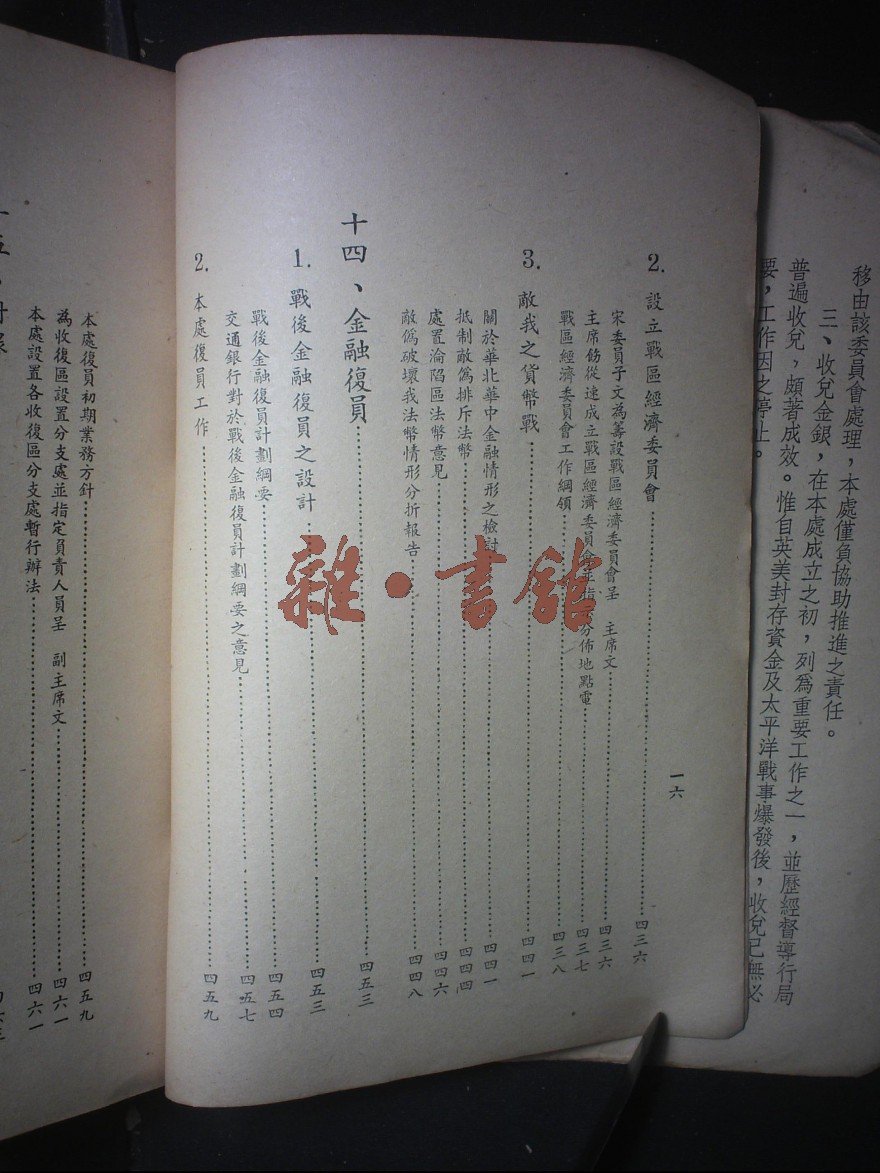 移由該委員會處理，本處僅負協助推進之責任。
三、收兌金銀，在本處成立之初，列爲重要工作之一，並歷經督導行局
普遍收兌，頗著成效。惟自英美封存資金及太平洋戰事爆發後，收兌已無必
要，工作因之停止。
一六
2. 設立戰區經濟委員會……四三六
宋委員子文為籌設戰區經濟委員會呈 主席文……四三六
主席飭從速成立戰區經濟委員會並指 分佈地點電……四三七
戰區經濟委員會工作綱領……四三八
3. 敵我之貨幣戰……四四一
關於華北華中金融情形之檢討……四四一
抵制敵偽排斥法幣……四四四
處置淪陷區法幣意見……四四六
敵偽破壞我法幣情形分折報告……四四八
十四、金融復員……四五三
1. 戰後金融復員之設計……四五三
戰後金融復員計劃綱要……四五四
交通銀行對於戰後金融復員計劃綱要之意見……四五七
2. 本處復員工作……四五九
本處復員初期業務方針……四五九
為收復區設置分支處並指定負責人員呈 副主席文……四六一
本處設置各收復區分支處暫行辦法……四六一
雜·書館